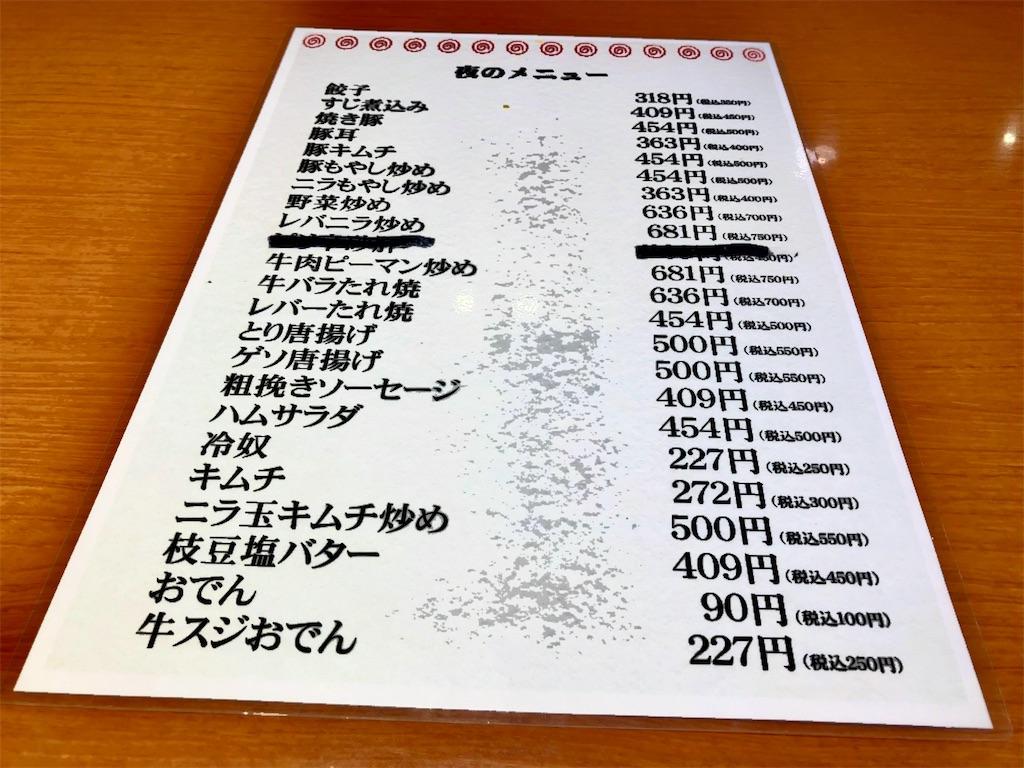 夜のメニュー
餃子 318円(税込350円)
すじ煮込み 409円(税込450円)
焼き豚 454円(税込500円)
豚耳 363円(税込400円)
豚キムチ 454円(税込500円)
豚もやし炒め 454円(税込500円)
ニラもやし炒め 363円(税込400円)
野菜炒め 636円(税込700円)
レバニラ炒め 681円(税込750円)
牛肉ピーマン炒め 681円(税込750円)
牛バラたれ焼 636円(税込700円)
レバーたれ焼 454円(税込500円)
とり唐揚げ 500円(税込550円)
ゲソ唐揚げ 500円(税込550円)
粗挽きソーセージ 409円(税込450円)
ハムサラダ 454円(税込500円)
冷奴 227円(税込250円)
キムチ 272円(税込300円)
ニラ玉キムチ炒め 500円(税込550円)
枝豆塩バター 409円(税込450円)
おでん 90円(税込100円)
牛スジおでん 227円(税込250円)